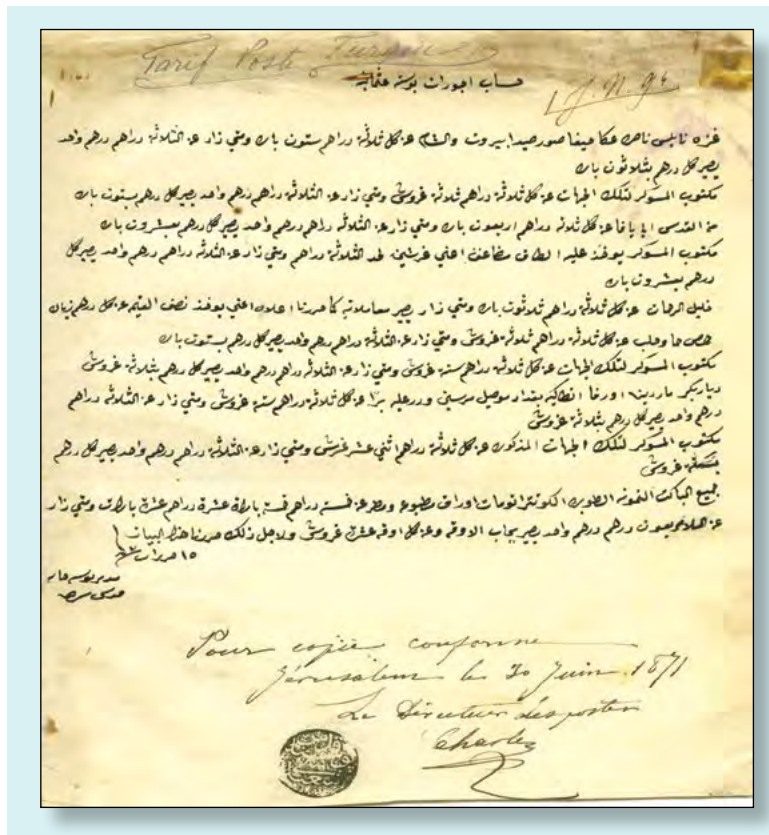 Tarif Poste Turque
J. N. 94
حساب اجورات بوسته عثمانية
غزه نابلس ناصره عكا حيفا صور صيدا بيروت والشام عن كل ثلاثة دراهم ستون باره ومتي زاد عن الثلاثة دراهم درهم واحد
يصير كل درهم بثلاثون باره
مكتوب المسوكر لتلك الجهات عن كل ثلاثة دراهم ثلاثة غروش ومتي زاد عن الثلاثة دراهم درهم واحد يصير كل درهم بستون باره
من القدس الي يافا عن كل ثلاثة دراهم اربعون باره ومتي زاد عن الثلاثة دراهم درهم واحد يصير كل درهم بعشرون باره
مكتوب المسوكر يوخذ عليه مضاعف اعني غرشين لحد الثلاثة دراهم ومتي زاد عن الثلاثة دراهم درهم واحد يصير كل
درهم بعشرون باره
خليل الرحمان عن كل ثلاثة دراهم ثلاثون باره ومتي زاد يصير معاملاته كما حررنا اعلاه اعني يوخذ نصف القيمة عن كل درهم
حمص حما وحلب عن كل ثلاثة دراهم ثلاثة غروش ومتي زاد عن الثلاثة دراهم درهم واحد يصير كل درهم بستون باره
مكتوب المسوكر لتلك الجهات عن كل ثلاثة دراهم ستة غروش ومتي زاد عن الثلاثة دراهم درهم واحد يصير كل درهم بثلاثة غروش
ديار بكر ماردين اورفا انطاكيه بغداد موصل مرسين برا عن كل ثلاثة دراهم ستة غروش ومتي زاد عن الثلاثة دراهم
درهم واحد يصير كل درهم بثلاثة غروش
مكتوب المسوكر لتلك الجهات المذكوره عن كل ثلاثة دراهم اثني عشر غرش ومتي زاد عن الثلاثة دراهم درهم واحد يصير كل درهم
بستة غروش
جميع اوراق مطبوع خمسة دراهم خمسة باراة عشرة دراهم عشرة بارات ومتي زاد
عن درهم درهم واحد يصير بحساب الاوقه وعن كل اوقه عشرة غروش ولاجل ذلك حررنا هذا البيان
١٥
مدير بوسته خانه
Pour copie conforme
Jérusalem le 30 Juin 1871
Le Directeur des postes
Charles